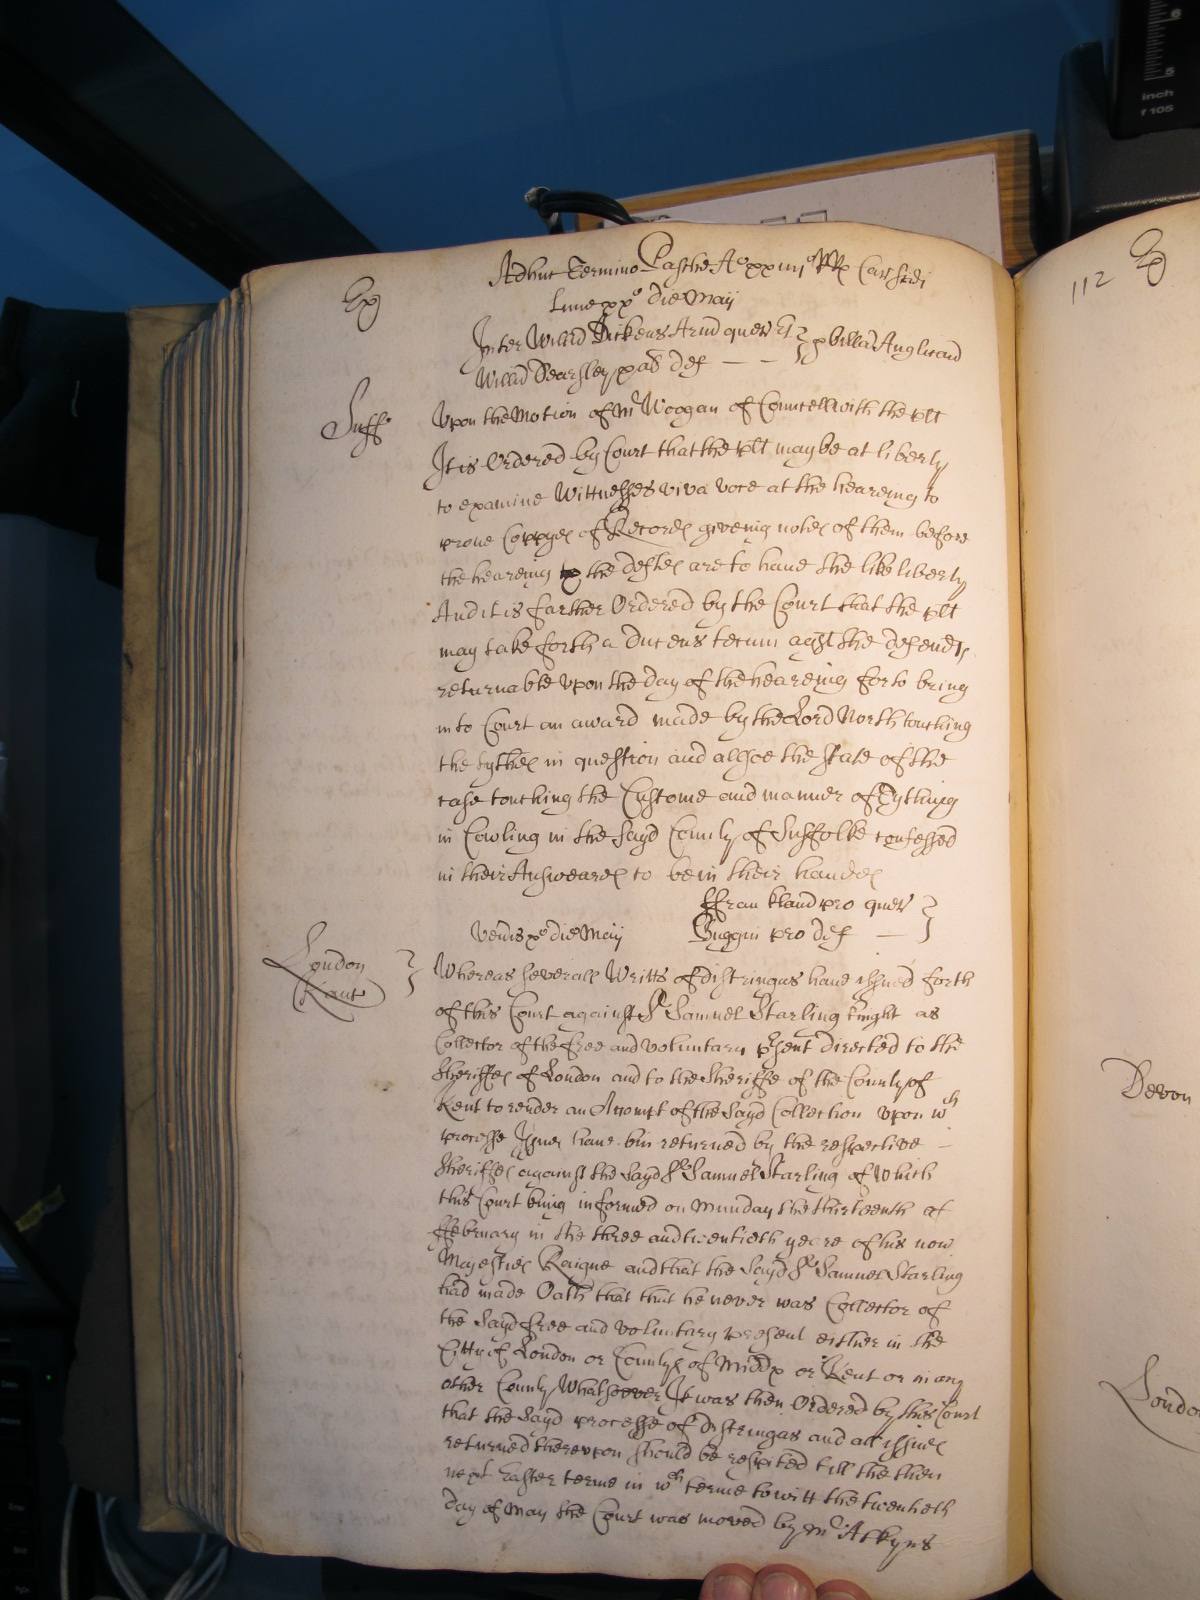 Ex
Adhuc Termino Pasche Ao xxiiijo RRx Car Scdi
Lune xxo die Maij
Inter Willm Dickens Armd quer Et } p billam Anglicand
Willm Pearsley p al def — —
Suff
Upon the Motion of Mr Woogan of Councell with the plt
It is Ordered by Court that the plt may be at liberty
to examine Wittnesses viva voce at the heareing to
prove Coppyes of Records giveing notes of them before
the heareing the deftes are to have the like liberty
And it is farther Ordered by the Court that the plt
may take forth a Ducens tecum agst the defendts
returnable upon the day of the heareing for to bring
into Court an award made by the Lord North touching
the tythes in question and alsoe the state of the
case touching the Custome and manner of Tything
in Cowling in the Sayd County of Suffolke confessed
in their Answeares to be in their handes
ffrankland pro quer }
Veneris xo die Maij Guggin pro def —
London
Kant }
Whereas severall Writts of distringas have issued forth
of this Court against Sr Samuel Starling knight as
Collector of the free and voluntary psent directed to the
Sheriffes of London and to the Sheriffe of the County of
Kent to render an Accompt of the Sayd Collection upon wch
processe Issues have bin returned by the respective —
Sheriffes against the Sayd Sr Samuel Starling of Which
this Court being informed on Munday the thirteenth of
ffebruary in the three and twentieth yeare of his now
Majesties Raigne and that the Sayd Sr Samuel Starling
had made Oath that that he never was Collector of
the Sayd free and voluntary present either in the
Citty of London or Countyes of Middx or Kent or in any
other County Whatsoever It was then Ordered by this Court
that the Sayd processe of distringas and all issues
returned thereupon should be respited till the then
next Easter terme in wch terme to witt the twentieth
day of May the Court was moved by Mr Atkyns
112 Ex
Devon
Londo
inch
f 105
6
5